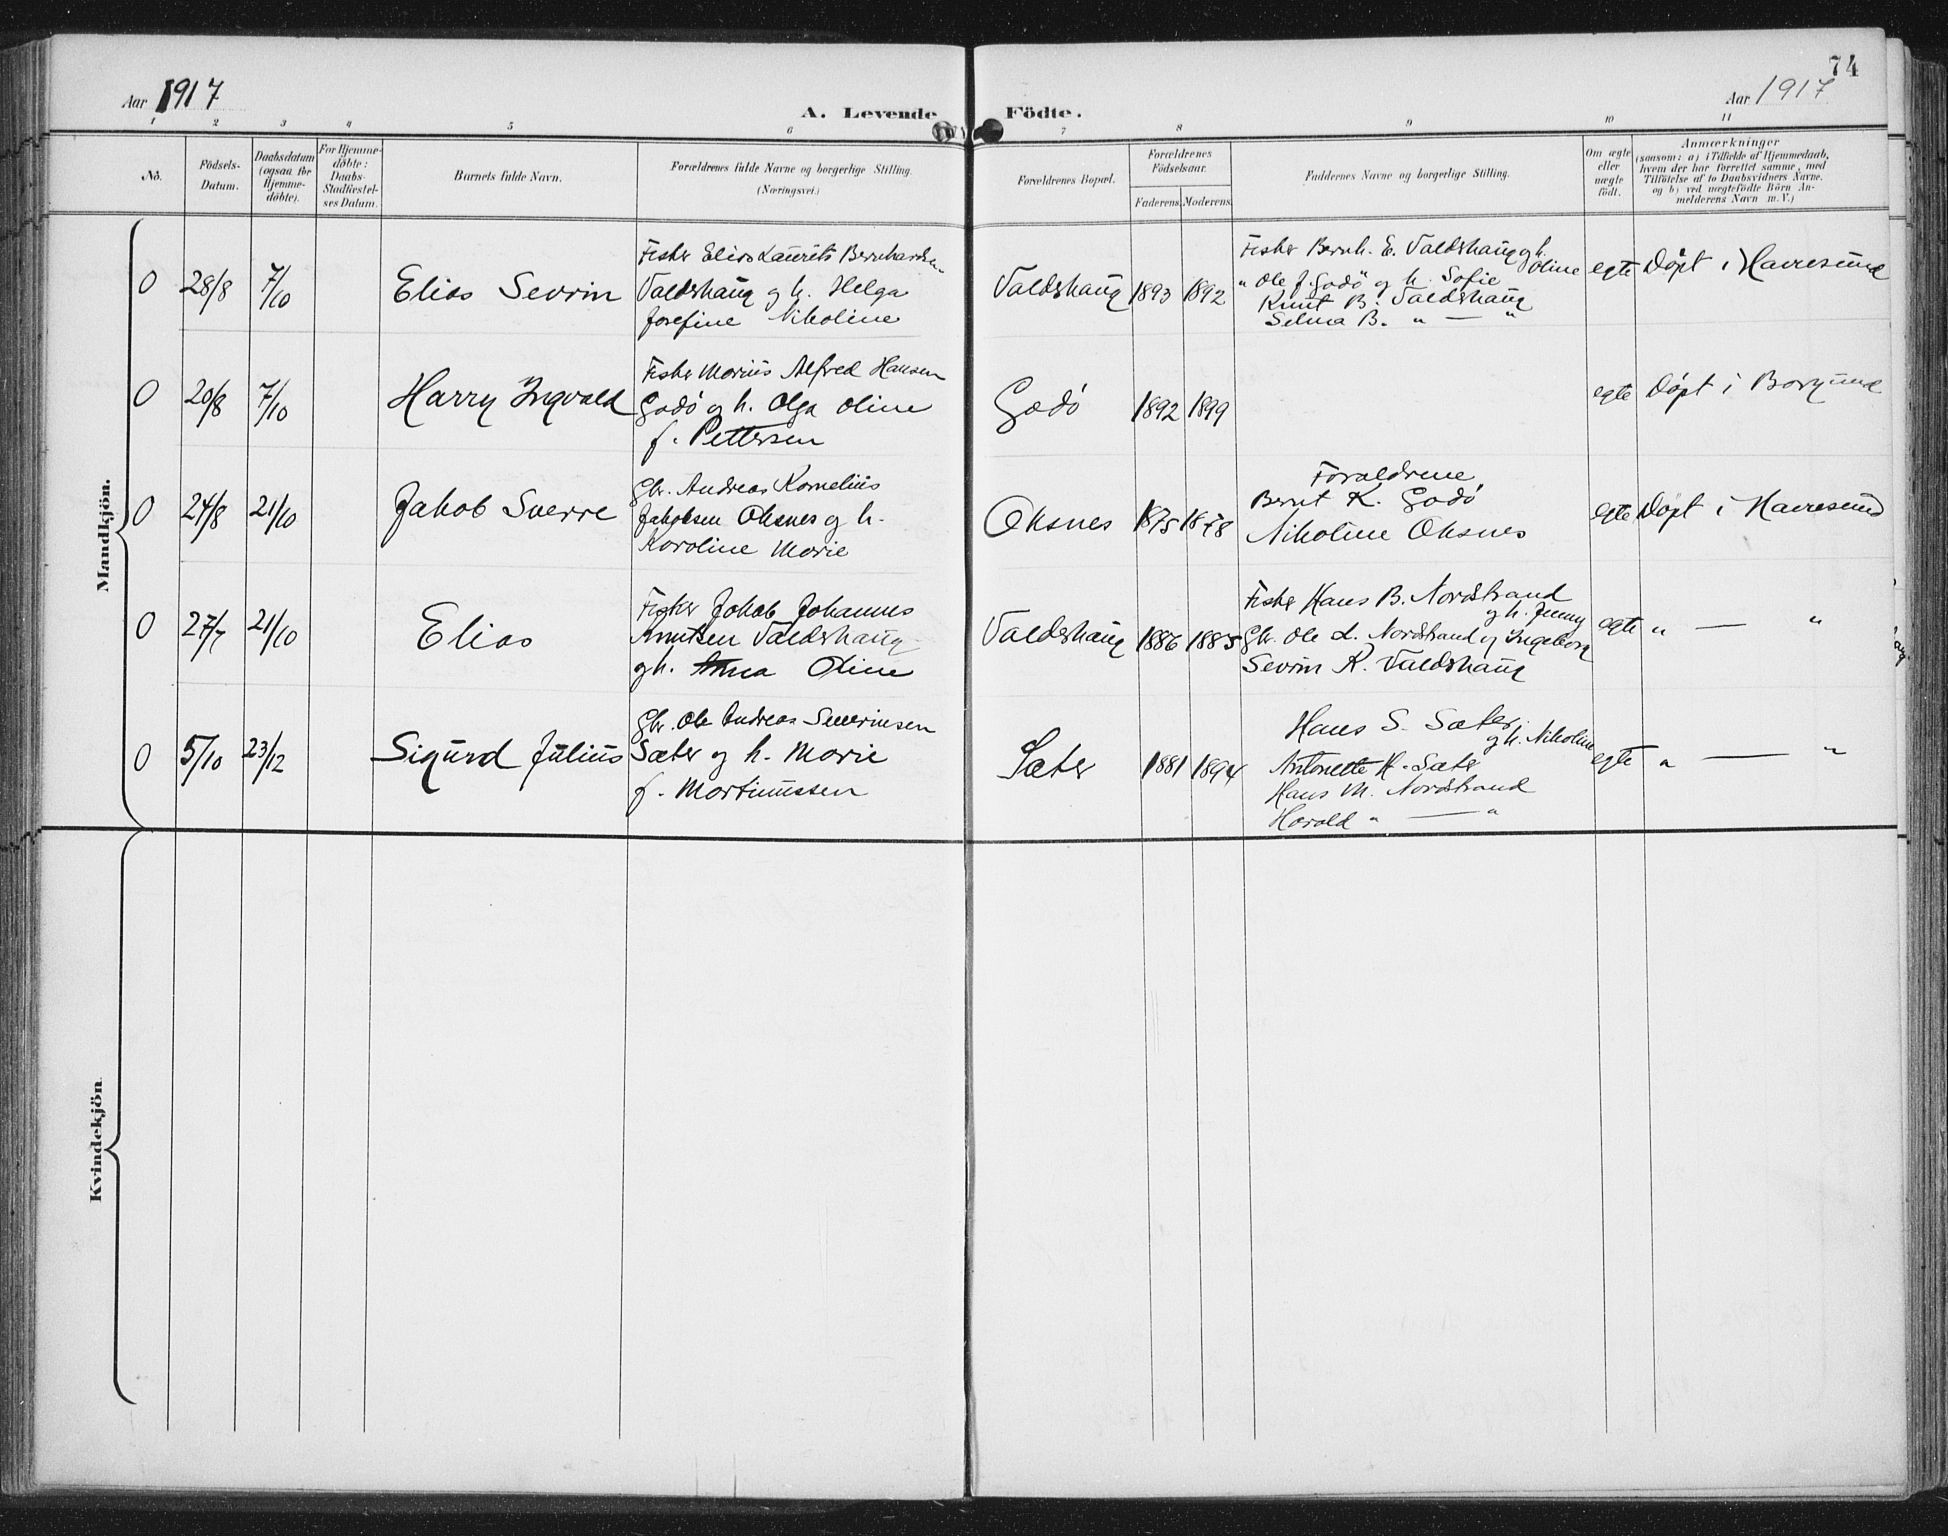 74
Aar 1917
A. Levende Födte.
Aar 1917
1 2 3 4 5 6 7 8 9 10 11
No.
Födsels-
Datum.
Daabsdatum
(ogsaa for
Hjemme-
döbte).
For Hjemme-
döbte:
Daabs-
Stadfæstel-
ses Datum.
Barnets fulde Navn.
Forældrenes fulde Navne og borgerlige Stilling.
(Næringsvei.)
Forældrenes Bopæl.
Forældrenes
Födselsaar.
Faderens. Moderens.
Faddernes Navne og borgerlige Stilling.
Om ægte
eller
uægte
födt.
Anmærkninger
(saasom: a) i Tilfælde af Hjemmedaab,
hvem der har forrettet samme, med
Tilföielse af to Daabsvidners Navne.
og b) ved uægtefödte Börn An-
melderens Navn m. V.)
Mandkjön.
0 28/8 7/10
Elias Sevrin
Fisker Elias Laurits Bernhardsen
Valdshaug og h. Helga
Josefine Nikoline
Valdshaug 1893 1892
Fisker Bernh. E. Valdshaug og h.
Oline
" Ole J. Godö og h. Sofie
Knut B. Valdshaug
Selma B. " — "
egte Döpt i Havresund
0 20/8 7/10
Harry Ingvald
Fisker Marius Alfred Hansen
Godö og h. Olga Oline
f. Pettersen
Godö 1892 1899
egte Döpt i Borgund
0 24/8 21/10
Jakob Sverre
Gbr. Andreas Kornelius
Jakobsen Oksnes og h.
Karoline Marie
Oksnes 1875 1878
Foraldrene
Bernt K. Godö
Nikoline Oksnes
egte Döpt i Havresund
0 27/7 21/10
Elias
Fisker Jakob Johannes
Knutsen Valdshaug
og h. Anna Oline
Valdshaug 1886 1885
Fisker Hans B. Nordstrand
og h. Jenny
Gbr. Ole L. Nordstrand og Ingeborg
Sevrin K. Valdshaug
egte " — "
0 5/10 23/12
Sigurd Julius
Gbr. Ole Andreas Severinsen
Sæter og h. Marie
f. Martinussen
Sæter 1881 1894
Hans S. Sæter
og h. Nikoline
Antonette H. Sæter
Hans M. Nordstrand
Harald " — "
egte " — "
Kvindekjön